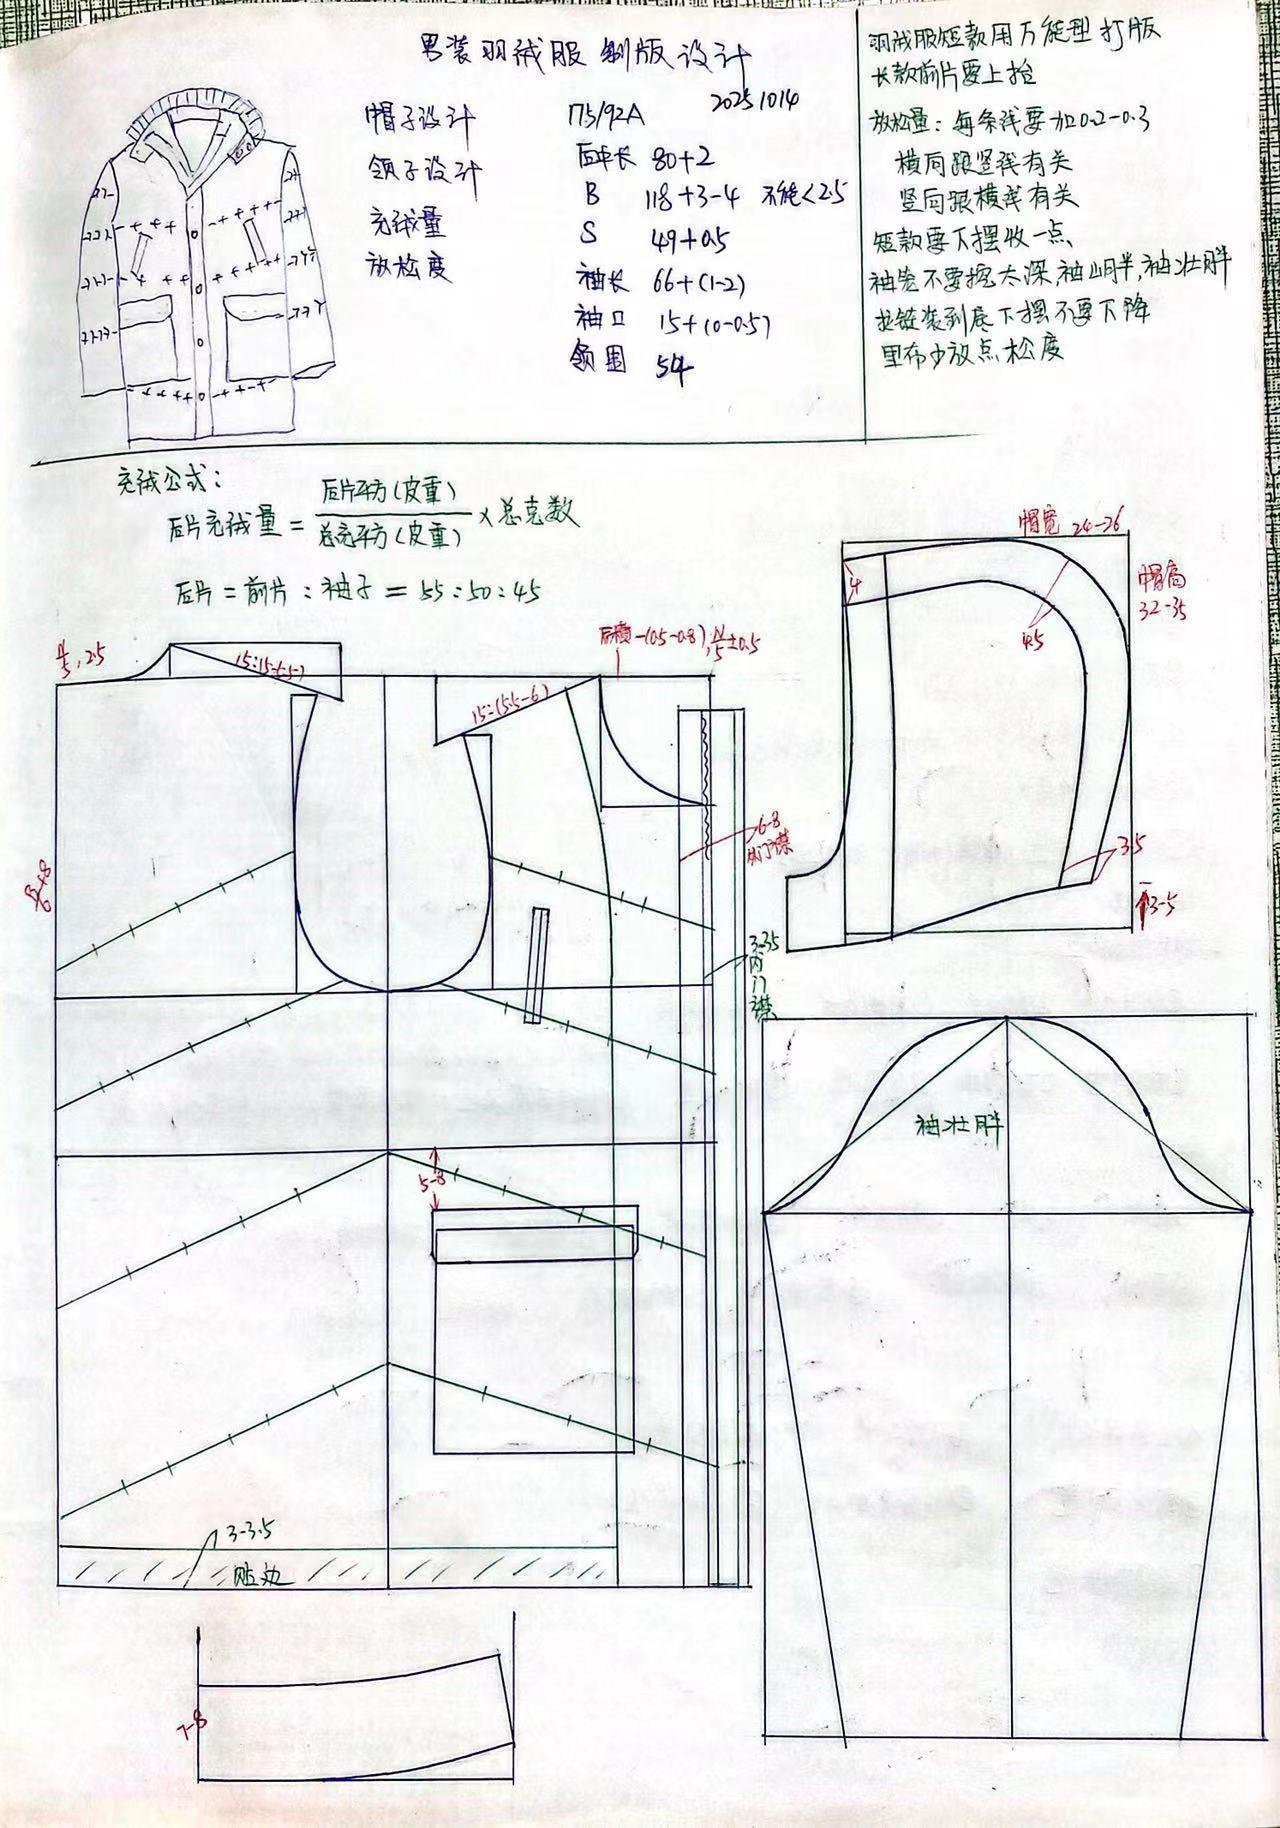 男装羽绒服制版设计
20251014
帽子设计
领子设计
充绒量
放松度
175/92A
后中长 80+2
B 118+3-4 不能<2.5
S 49+0.5
袖长 66+(1-2)
袖口 15+(0-0.5)
领围 54
羽绒服短款用万能型打版
长款前片要上抬
放松量：每条线要加0.2-0.3
横向跟竖线有关
竖向跟横线有关
短款要下摆收一点
袖笼不要挖太深，袖山胖，袖壮胖
拉链装到底下摆不要下降
里布少放点松度
充绒公式：
后片充绒量 = 后片平方(皮重) / 总充平方(皮重) × 总克数
后片=前片：袖子=55:50:45
帽宽 24-26
帽高
32-35
4
4.5
3.5
3-5
N/5, 2.5
15:(5-5.5)
后横-(0.5-0.8), N/5±0.5
15=(5.5-6)
6-8
外门襟
3-3.5
内门襟
5-8
3-3.5
贴边
袖壮胖
7-8